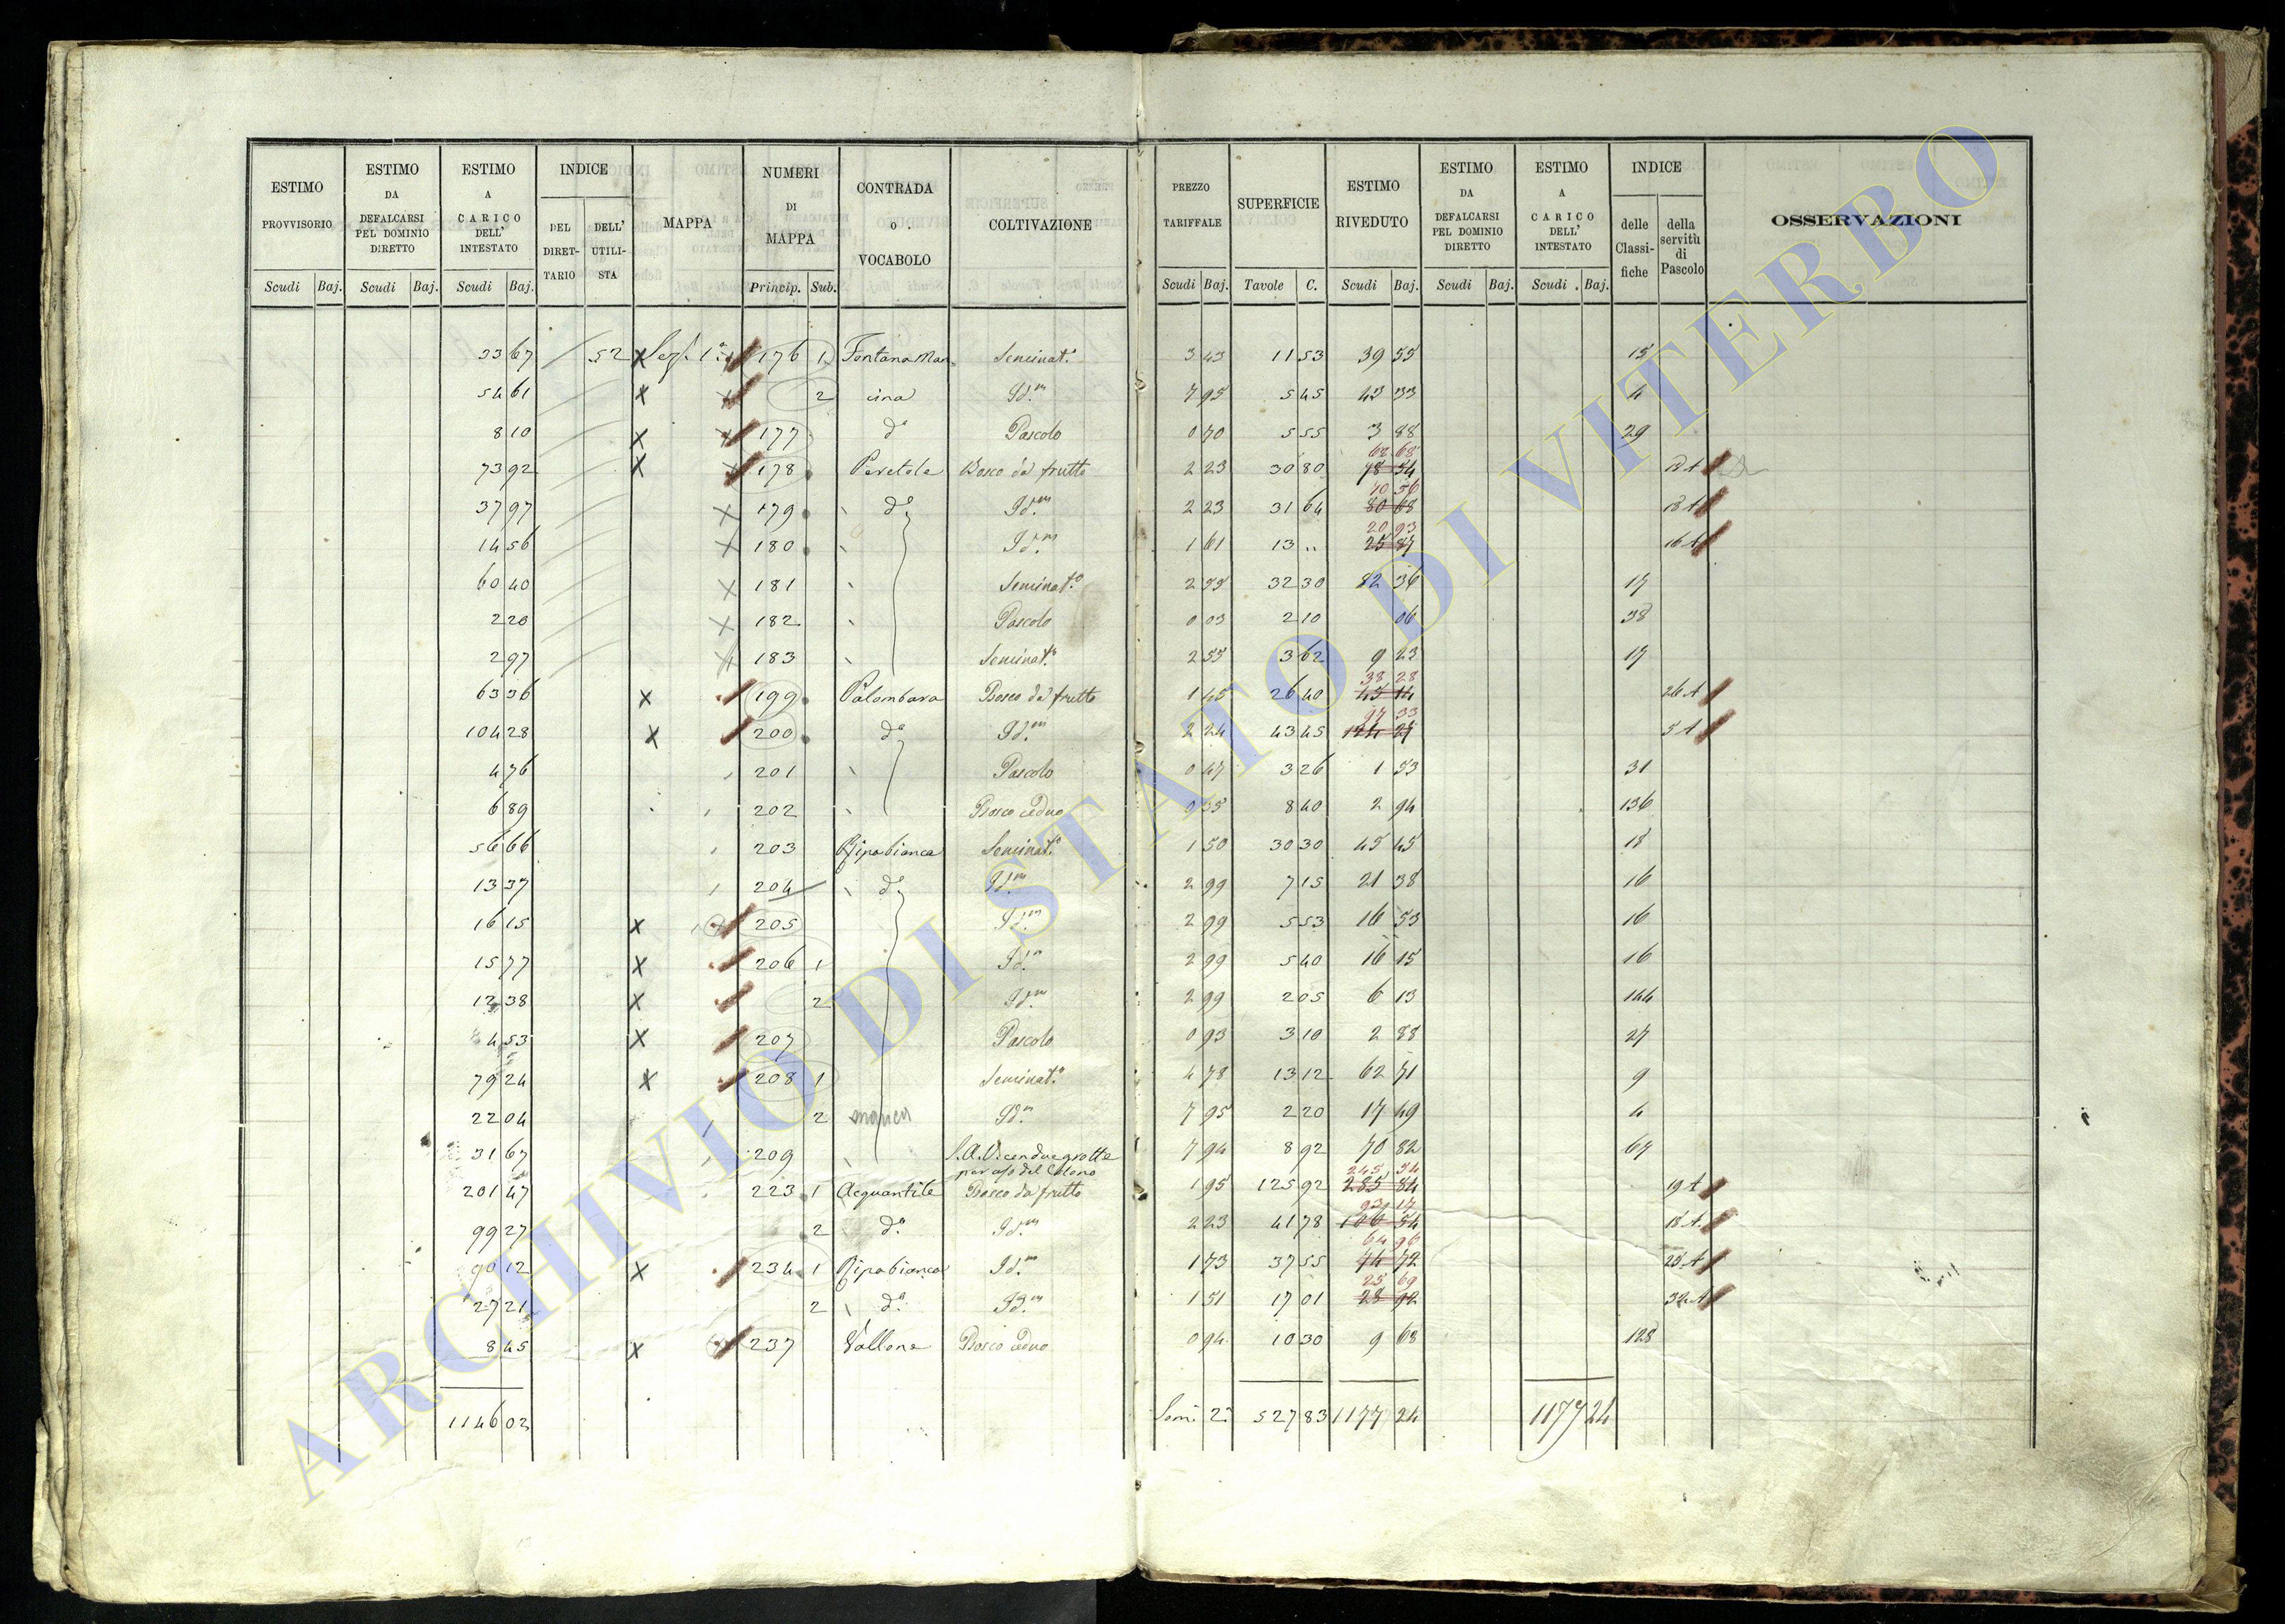 ESTIMO PROVVISORIO | ESTIMO DA DEFALCARSI PEL DOMINIO DIRETTO | ESTIMO A CARICO DELL' INTESTATO | INDICE | MAPPA | NUMERI DI MAPPA | CONTRADA O VOCABOLO | COLTIVAZIONE | PREZZO TARIFFALE | SUPERFICIE | ESTIMO RIVEDUTO | ESTIMO DA DEFALCARSI PEL DOMINIO DIRETTO | ESTIMO A CARICO DELL' INTESTATO | INDICE | OSSERVAZIONI
DEL DIRETTARIO | DELL' UTILISTA | delle Classifiche | della servitù di Pascolo
Scudi | Baj. | Scudi | Baj. | Scudi | Baj. | Princip. | Sub. | Scudi | Baj. | Tavole | C. | Scudi | Baj. | Scudi | Baj. | Scudi | Baj.
33 67 | 52 | x Sez. 1ª | 176 | 1 | Fontana Mar | Seminat.º | 3 43 | 11 53 | 39 55 | 15
54 61 | x | 2 | cina | Id.m | 7 95 | 5 45 | 43 33 | 4
8 10 | x | 177 | dª | Pascolo | 0 70 | 5 55 | 3 88 | 29
73 92 | x | 178 | Peretole | Bosco da frutto | 2 23 | 30 80 | 68 68 | 78 54
37 97 | x | 179 | dª | Id.m | 2 23 | 31 64 | 70 56 | 80 68 | 18 A
14 56 | x | 180 | Id.m | 1 61 | 13 " | 20 93 | 25 87 | 16 A
60 40 | x | 181 | Seminat.º | 2 55 | 32 30 | 82 36 | 17
2 20 | x | 182 | Pascolo | 0 03 | 2 10 | 06 | 38
2 97 | 183 | Seminat.º | 2 55 | 3 62 | 9 23 | 17
63 36 | x | 199 | Palombara | Bosco da frutto | 1 45 | 26 40 | 38 28 | 45 14 | 26 A
104 28 | x | 200 | dª | Id.m | 2 24 | 43 45 | 97 33 | 5 A
4 76 | 201 | Pascolo | 0 47 | 3 26 | 1 53 | 31
6 89 | 202 | Bosco ceduo | 0 35 | 8 40 | 2 94 | 136
56 66 | 203 | Ripabianca | Seminat.º | 1 50 | 30 30 | 45 45 | 18
13 37 | 204 | dª | Id.m | 2 99 | 7 15 | 21 38 | 16
16 15 | x | 205 | Id.m | 2 99 | 5 53 | 16 53 | 16
15 77 | x | 206 | 1 | Id.m | 2 99 | 5 40 | 16 15 | 16
12 38 | x | 2 | Id.m | 2 99 | 2 05 | 6 13 | 144
4 53 | x | 207 | Pascolo | 0 93 | 3 10 | 2 88 | 27
79 24 | x | 208 | 1 | Seminat.º | 4 78 | 13 12 | 62 71 | 9
22 04 | 2 | Id.m | 7 95 | 2 20 | 17 49 | 4
31 67 | 209 | S.A.V. con due grotte | 7 94 | 8 92 | 70 82 | 67
per uso del Colono
201 47 | 223 | 1 | Acquantile | Bosco da frutto | 1 95 | 125 92 | 245 54 | 285 84 | 19 A
99 27 | 2 | dª | Id.m | 2 23 | 41 78 | 93 17 | 106 54 | 18 A
90 12 | x | 234 | 1 | Ripabianca | Id.m | 1 73 | 37 55 | 64 96 | 74 72
27 21 | 2 | dª | Id.m | 1 51 | 17 01 | 25 69 | 28 92
8 45 | x | 237 | Vallone | Bosco ceduo | 0 94 | 10 30 | 9 68 | 128
1146 02 | 527 83 | 1177 24 | 1177 24
ARCHIVIO DI STATO DI VITERBO